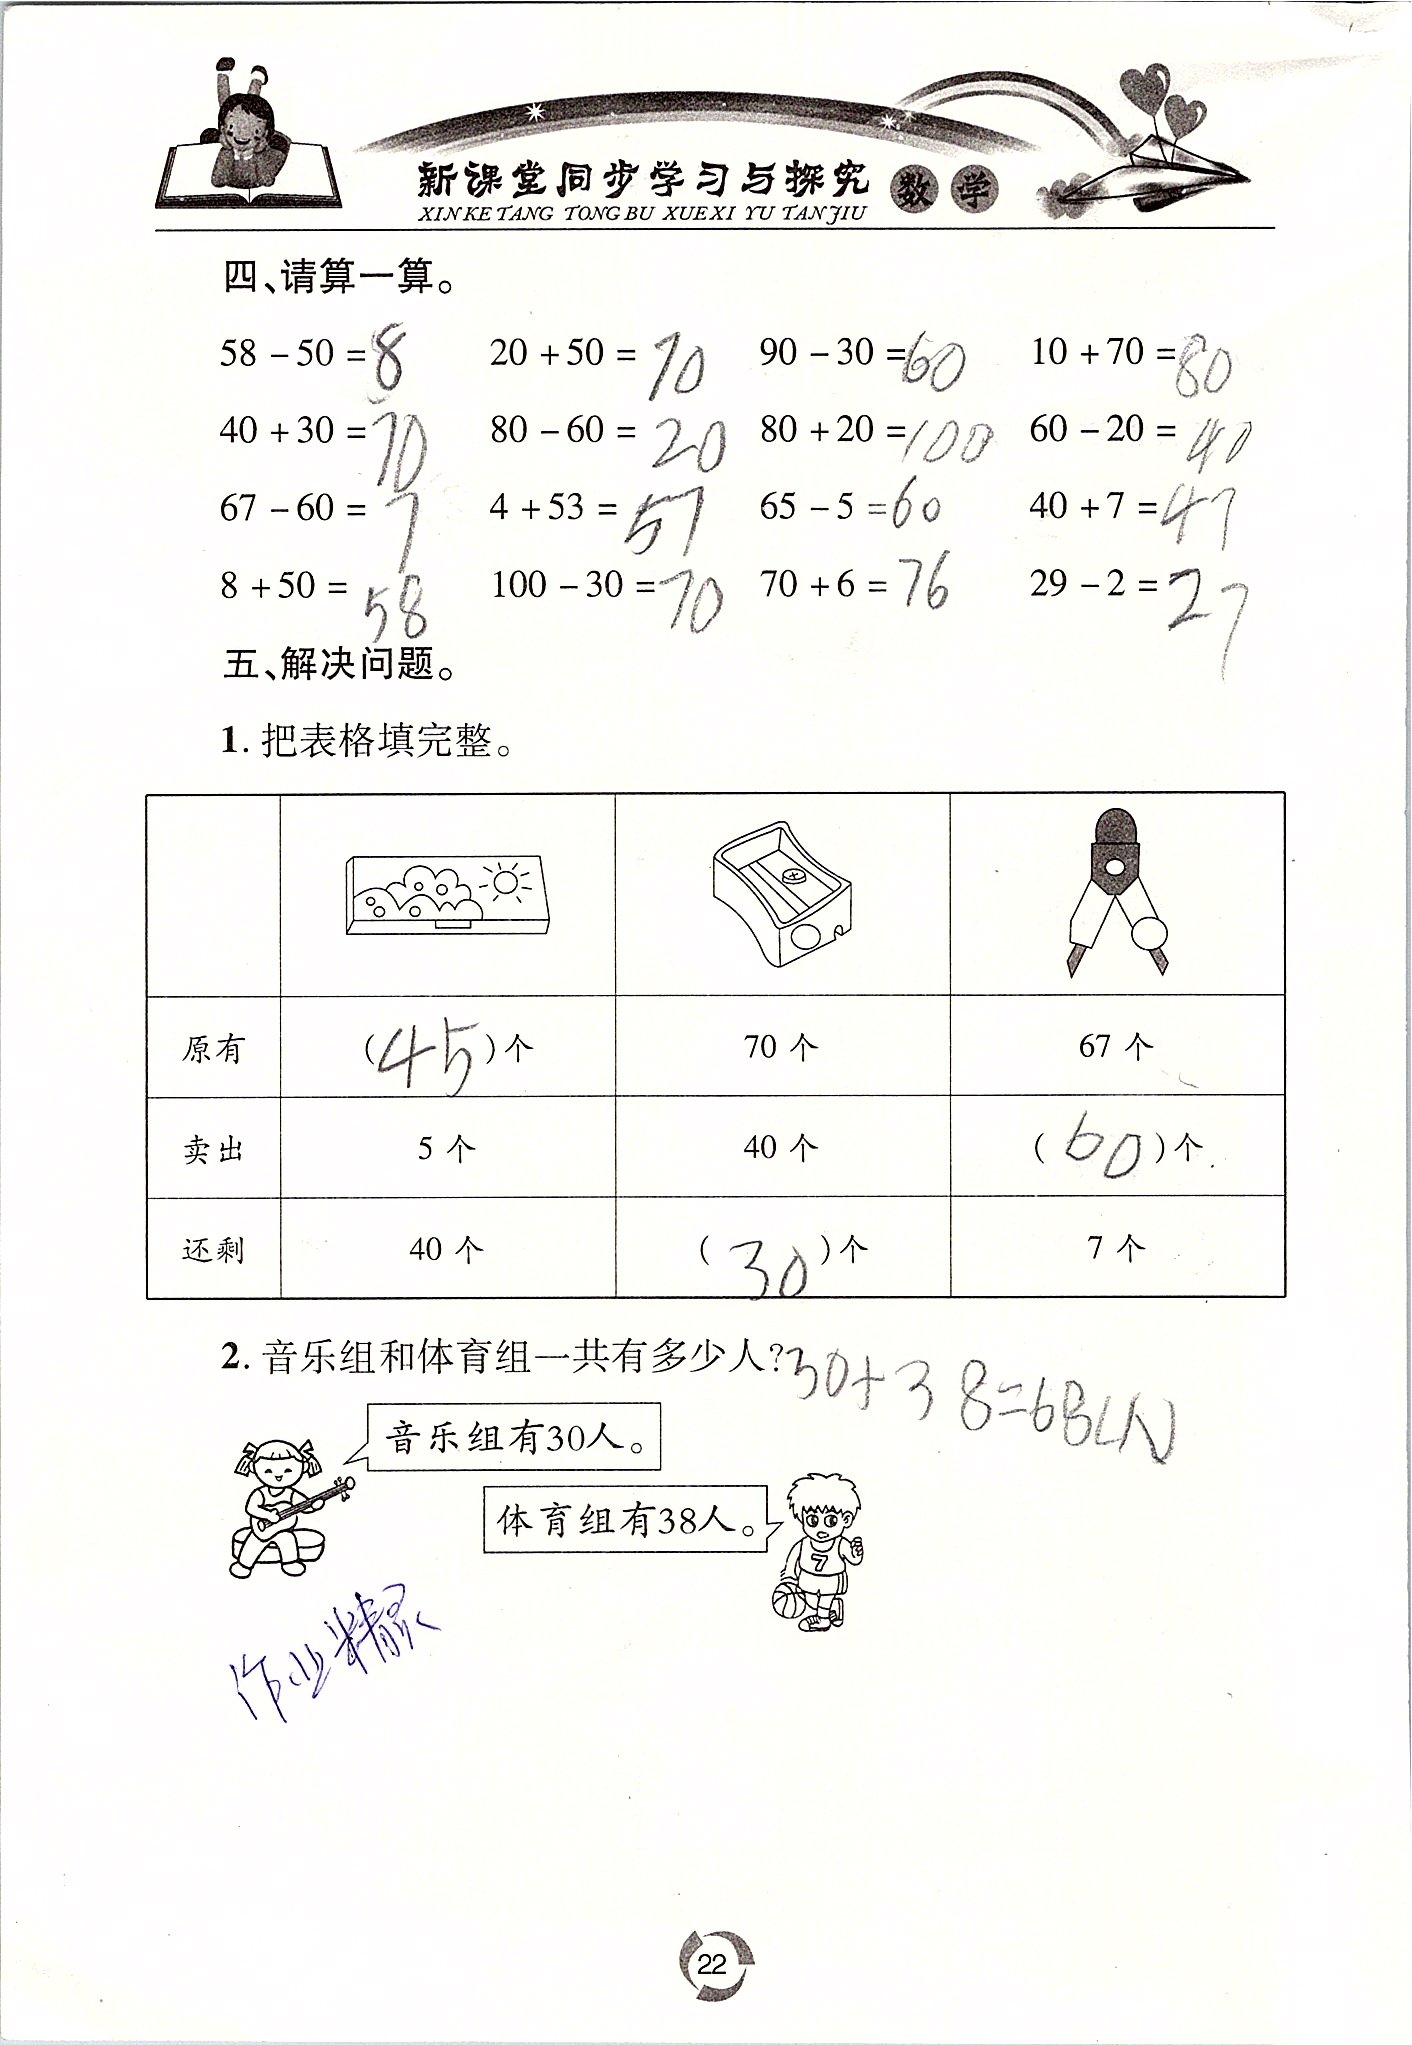 新课堂同步学习与探究 数学
XIN KE TANG TONG BU XUE XI YU TAN JIU
四、请算一算。
58－50＝8 20＋50＝70 90－30＝60 10＋70＝80
40＋30＝70 80－60＝20 80＋20＝100 60－20＝40
67－60＝7 4＋53＝57 65－5＝60 40＋7＝47
8＋50＝58 100－30＝70 70＋6＝76 29－2＝27
五、解决问题。
1. 把表格填完整。
原有 (45)个 70个 67个
卖出 5个 40个 (60)个
还剩 40个 (30)个 7个
2. 音乐组和体育组一共有多少人?30+38=68(人)
音乐组有30人。
体育组有38人。
7
作业精灵
22